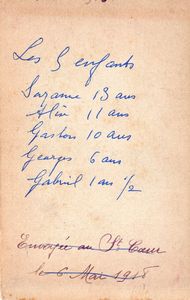 Les 5 enfants
Suzanne 13 ans
Aline 11 ans
Gaston 10 ans
Georges 6 ans
Gabriel 1 an ½
Envoyée au St Cœur
le 6 Mai 1918